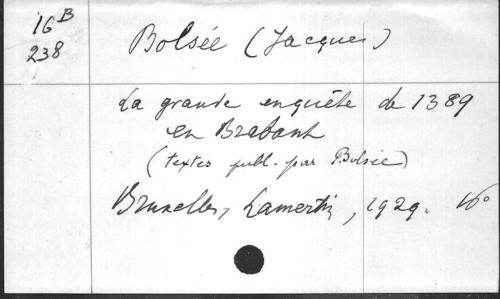 16 B
238
Bolsée (Jacques)
La grande enquête de 1389
en Brabant
(textes publ. par Bolsée)
Bruxelles, Lamertin, 1929. 16°